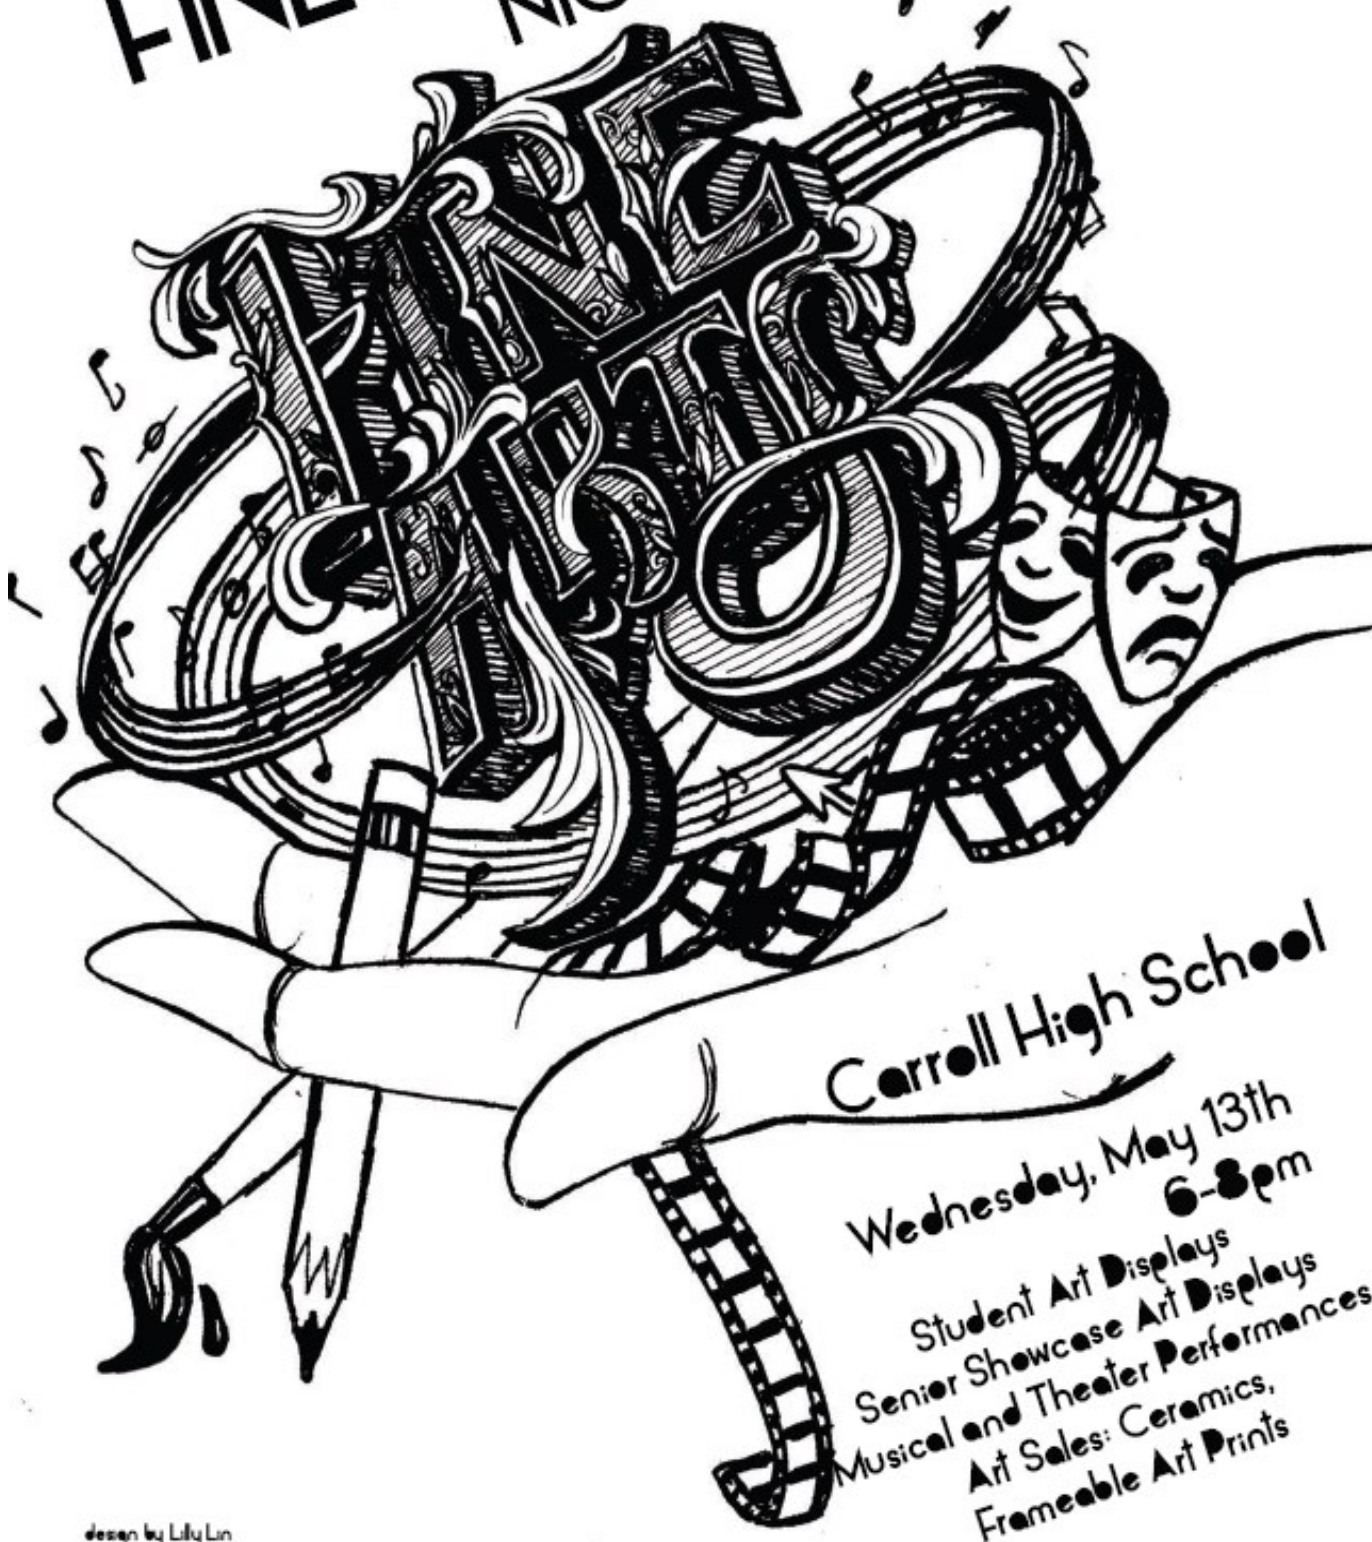 FINE
FINE
ARTS
Carroll High School
Wednesday, May 13th
6-8pm
Student Art Displays
Senior Showcase Art Displays
Musical and Theater Performances
Art Sales: Ceramics,
Frameable Art Prints
design by Lilly Lin